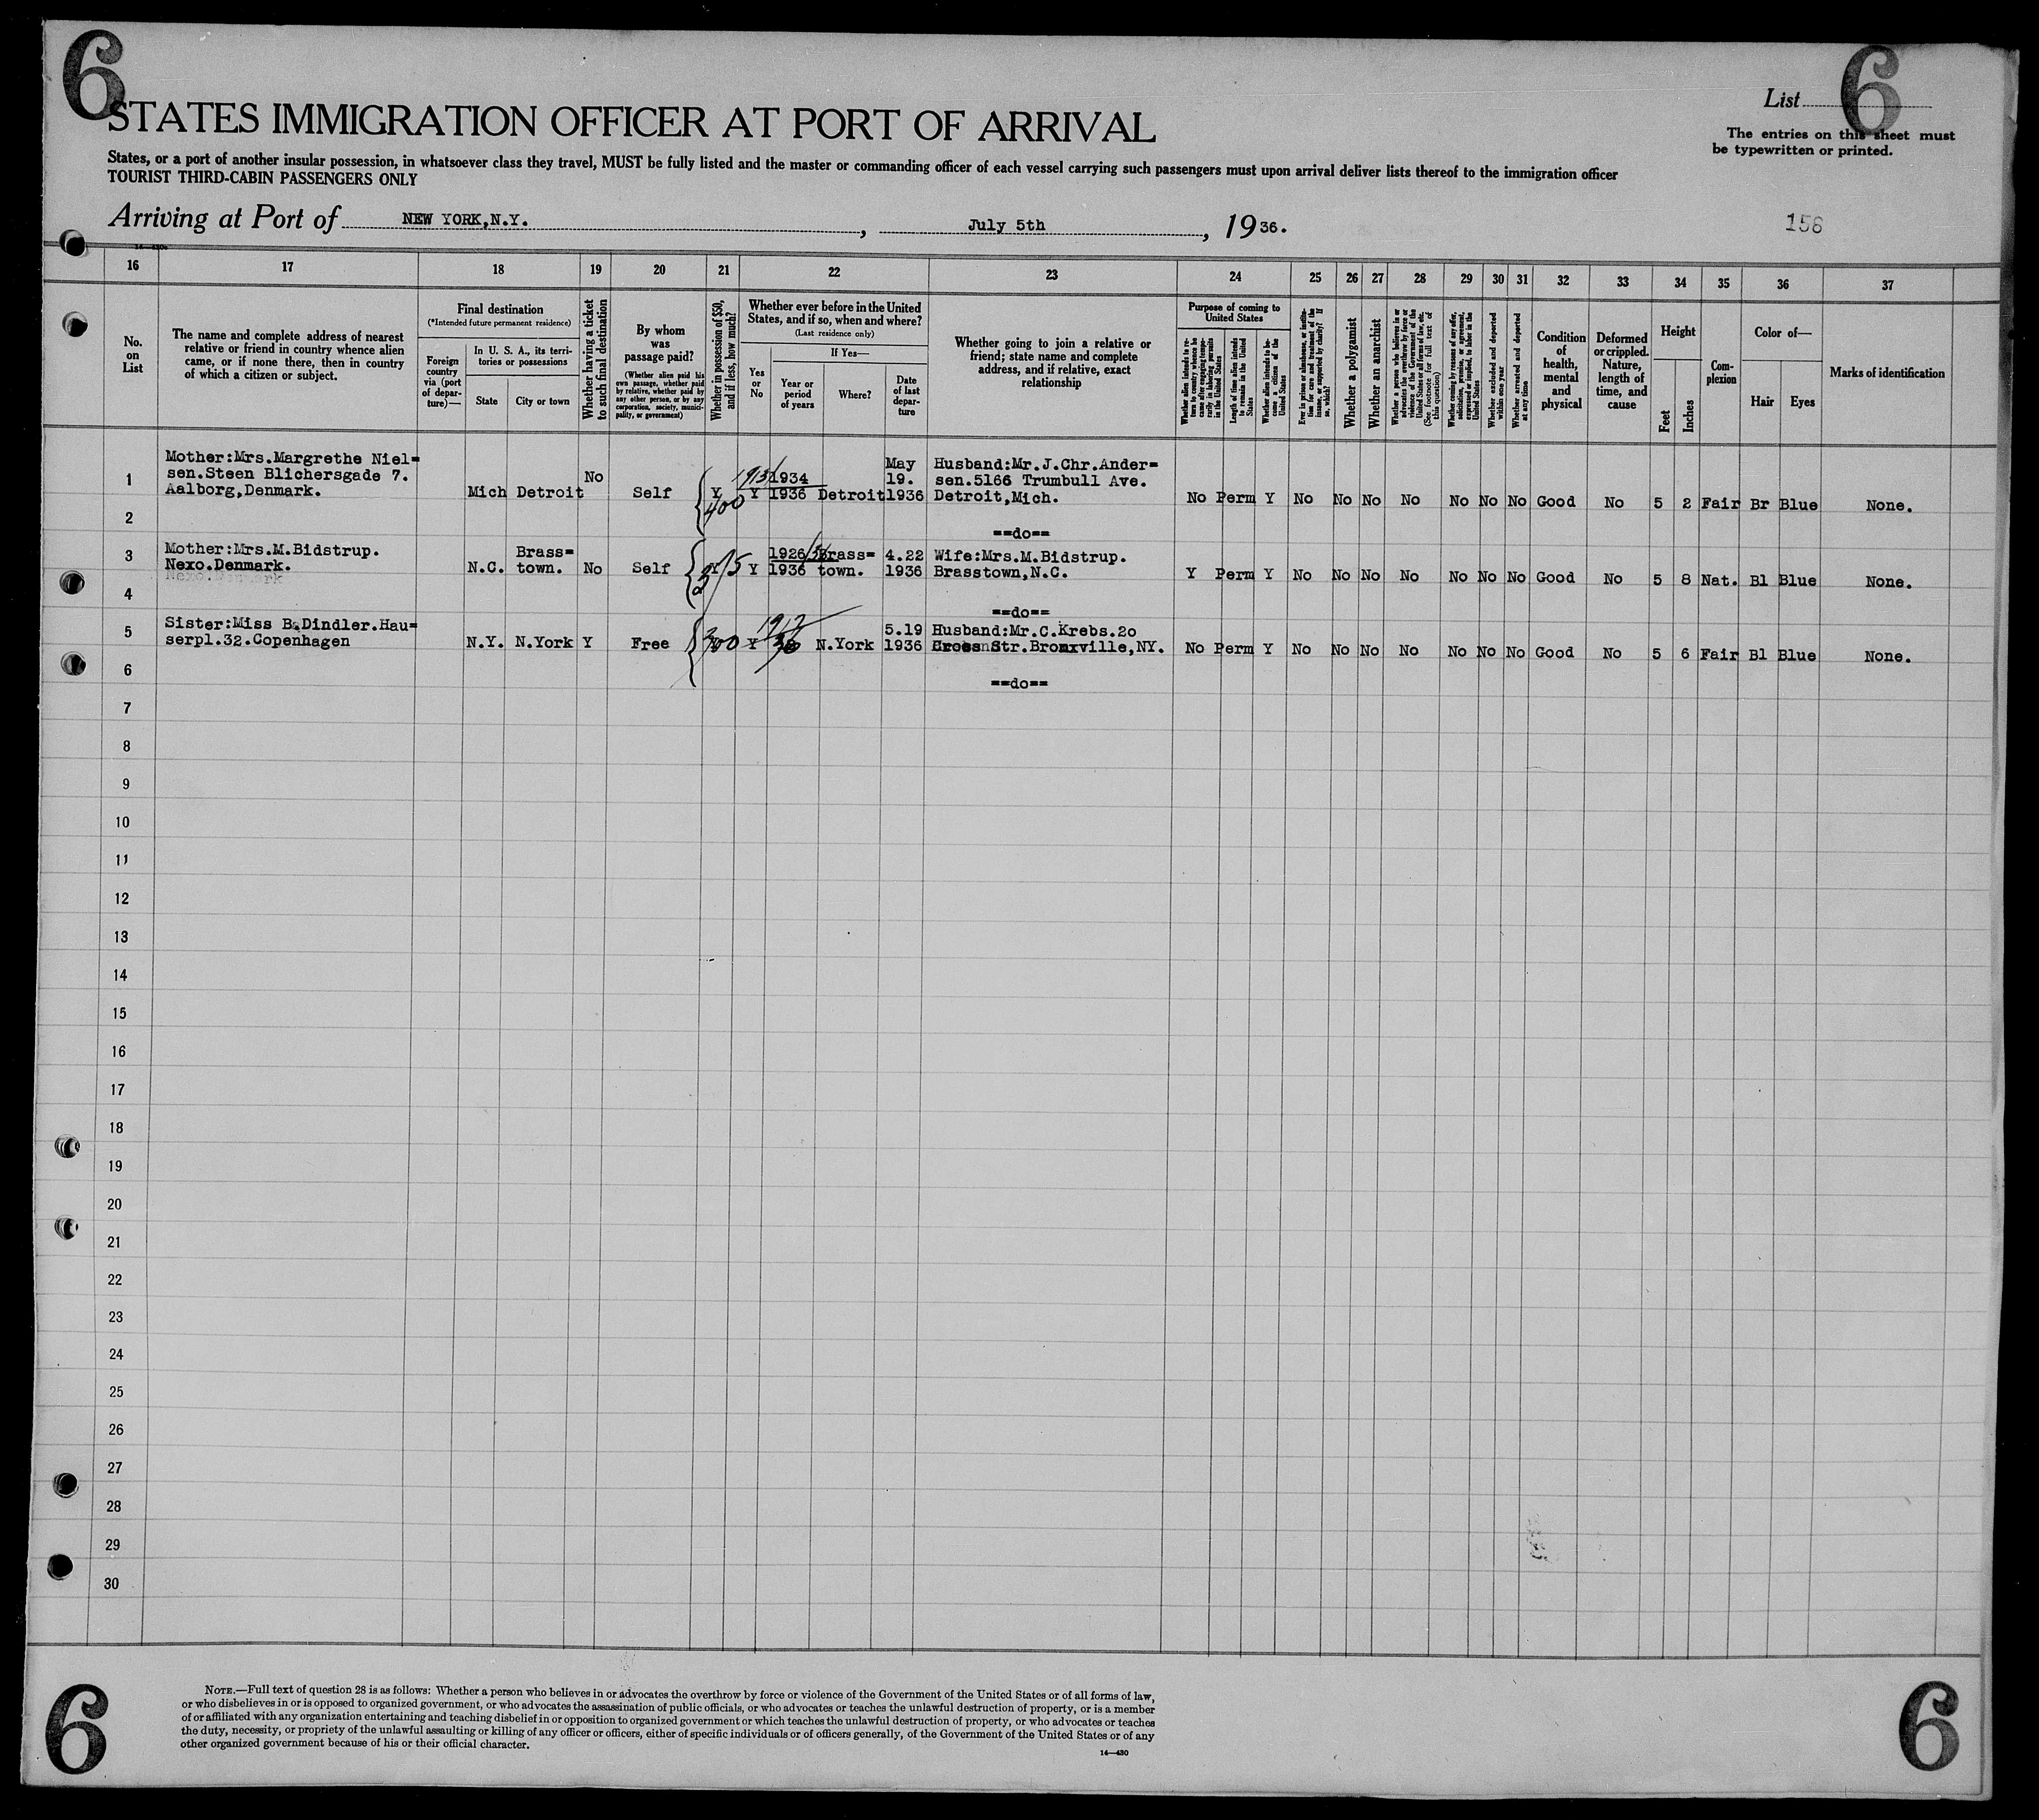 6
6
STATES IMMIGRATION OFFICER AT PORT OF ARRIVAL
List
The entries on this sheet must
be typewritten or printed.
States, or a port of another insular possession, in whatsoever class they travel, MUST be fully listed and the master or commanding officer of each vessel carrying such passengers must upon arrival deliver lists thereof to the immigration officer
TOURIST THIRD-CABIN PASSENGERS ONLY
Arriving at Port of NEW YORK,N.Y., July 5th, 1936.
158
16 17 18 19 20 21 22 23 24 25 26 27 28 29 30 31 32 33 34 35 36 37
No.
on
List
The name and complete address of nearest
relative or friend in country whence alien
came, or if none there, then in country
of which a citizen or subject.
Final destination
(*Intended future permanent residence)
Foreign
country
via (port
of depar-
ture)—
In U. S. A., its terri-
tories or possessions
State
City or town
Whether having a ticket
to such final destination
By whom
was
passage paid?
(Whether alien paid his
own passage, whether paid
by relative, whether paid by
any other person, or by any
corporation, society, munici-
pality, or government)
Whether in possession of $50,
and if less, how much?
Whether ever before in the United
States, and if so, when and where?
(Last residence only)
Yes
or
No
If Yes—
Year or
period
of years
Where?
Date
of last
depar-
ture
Whether going to join a relative or
friend; state name and complete
address, and if relative, exact
relationship
Purpose of coming to
United States
Whether alien intends to re-
turn to country whence he
came after engaging tempo-
rarily in laboring pursuits
in the United States
Length of time alien intends
to remain in the United
States
Whether alien intends to be-
come a citizen of the
United States
Ever in prison or almshouse, or institu-
tion for care and treatment of the
insane, or supported by charity? If
so, which?
Whether a polygamist
Whether an anarchist
Whether a person who believes in or
advocates the overthrow by force or
violence of the Government of the
United States or all forms of law, etc.
(See footnote for full text of
this question)
Whether coming by reasons of any offer,
solicitation, promise, or agreement,
expressed or implied, to labor in the
United States
Whether excluded and deported
within one year
Whether arrested and deported
at any time
Condition
of
health,
mental
and
physical
Deformed
or crippled.
Nature,
length of
time, and
cause
Height
Feet
Inches
Com-
plexion
Color of—
Hair
Eyes
Marks of identification
1
Mother:Mrs.Margrethe Niel=
sen.Steen Blichersgade 7.
Aalborg,Denmark.
Mich Detroit No Self Y 400 Y 1934
1936 Detroit May
19.
1936
Husband:Mr.J.Chr.Ander=
sen.5166 Trumbull Ave.
Detroit,Mich.
No Perm Y No No No No No No No Good No 5 2 Fair Br Blue None.
2
==do==
3
Mother:Mrs.M.Bidstrup.
Nexo.Denmark.
Nexo.Denmark
N.C. Brass=
town. No Self Y 1926
1936 Brass=
town. 4.22
1936
Wife:Mrs.M.Bidstrup.
Brasstown,N.C.
Y Perm Y No No No No No No No Good No 5 8 Nat. Bl Blue None.
4
==do==
5
Sister:Miss B.Dindler.Hau=
serpl.32.Copenhagen
N.Y. N.York Y Free Y N.York 5.19
1936
Husband:Mr.C.Krebs.20
Str.Bronxville,NY.
No Perm Y No No No No No No No Good No 5 6 Fair Bl Blue None.
6
==do==
7
8
9
10
11
12
13
14
15
16
17
18
19
20
21
22
23
24
25
26
27
28
29
30
NOTE.—Full text of question 28 is as follows: Whether a person who believes in or advocates the overthrow by force or violence of the Government of the United States or of all forms of law,
or who disbelieves in or is opposed to organized government, or who advocates the assassination of public officials, or who advocates or teaches the unlawful destruction of property, or is a member
of or affiliated with any organization entertaining and teaching disbelief in or opposition to organized government or which teaches the unlawful destruction of property, or who advocates or teaches
the duty, necessity, or propriety of the unlawful assaulting or killing of any officer or officers, either of specific individuals or of officers generally, of the Government of the United States or of any
other organized government because of his or their official character.
14—430
6
6